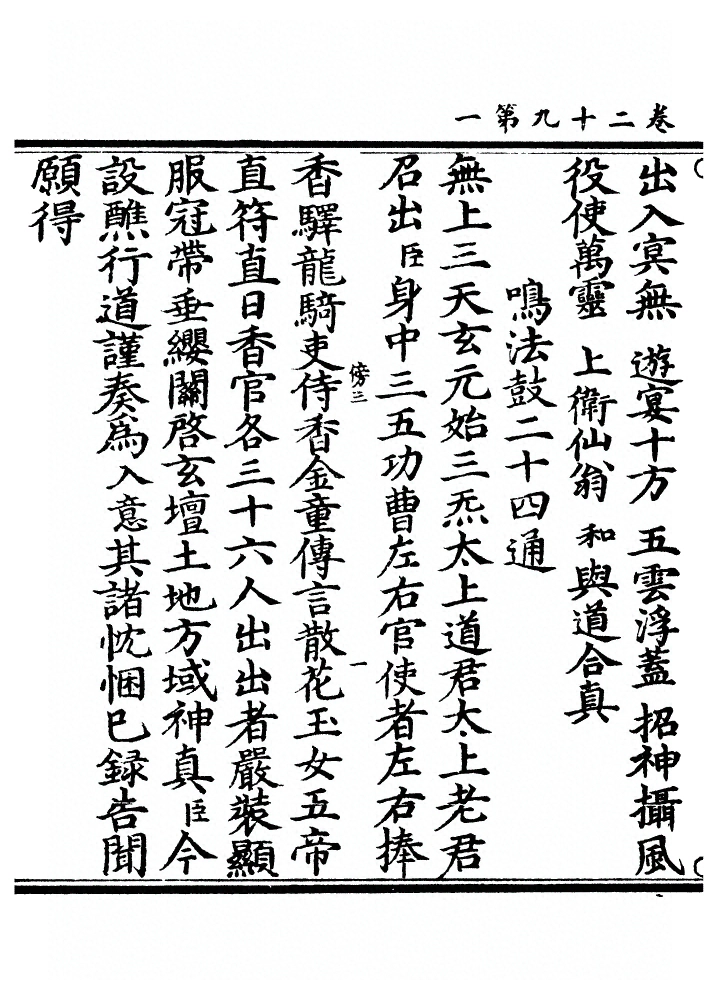 卷二十九第一
出入冥無　遊宴十方　五雲浮蓋　招神攝風
役使萬靈　上衛仙翁　和與道合真
鳴法鼓二十四通
無上三天玄元始三炁太上道君太上老君
召出臣身中三五功曹左右官使者左右捧
香驛龍騎吏侍香金童傳言散花玉女五帝
傍三
一
直符直日香官各三十六人出出者嚴裝顯
服冠帶垂纓關啓玄壇土地方域神真臣今
設醮行道謹奏為入意其諸忱悃已録告聞
願得